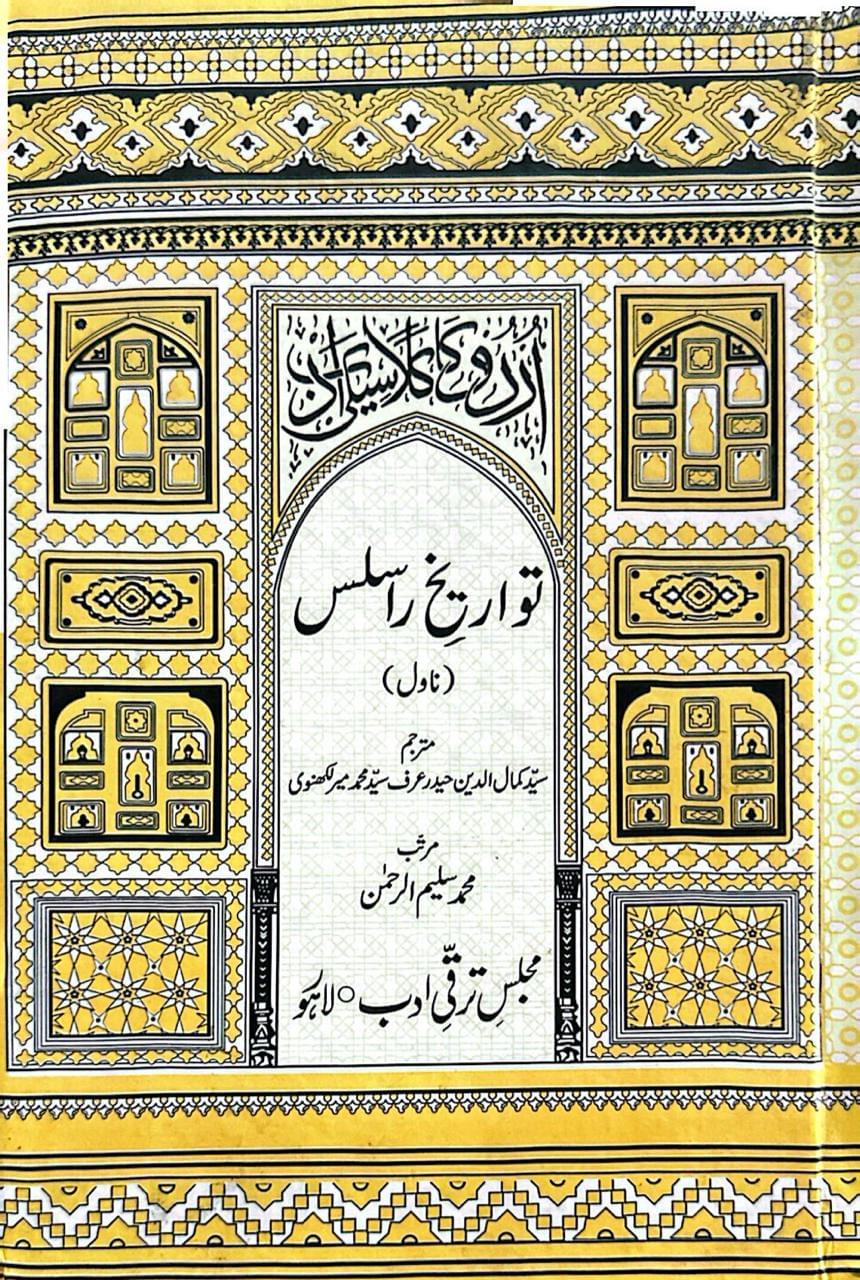 اردو کا کلاسیکی ادب
تواریخ راسلس
(ناول)
مترجم
سیّد کمال الدین حیدر عرف سیّد محمد میر لکھنوی
مرتّب
محمد سلیم الرحمٰن
مجلسِ ترقّیِ ادب ○ لاہور